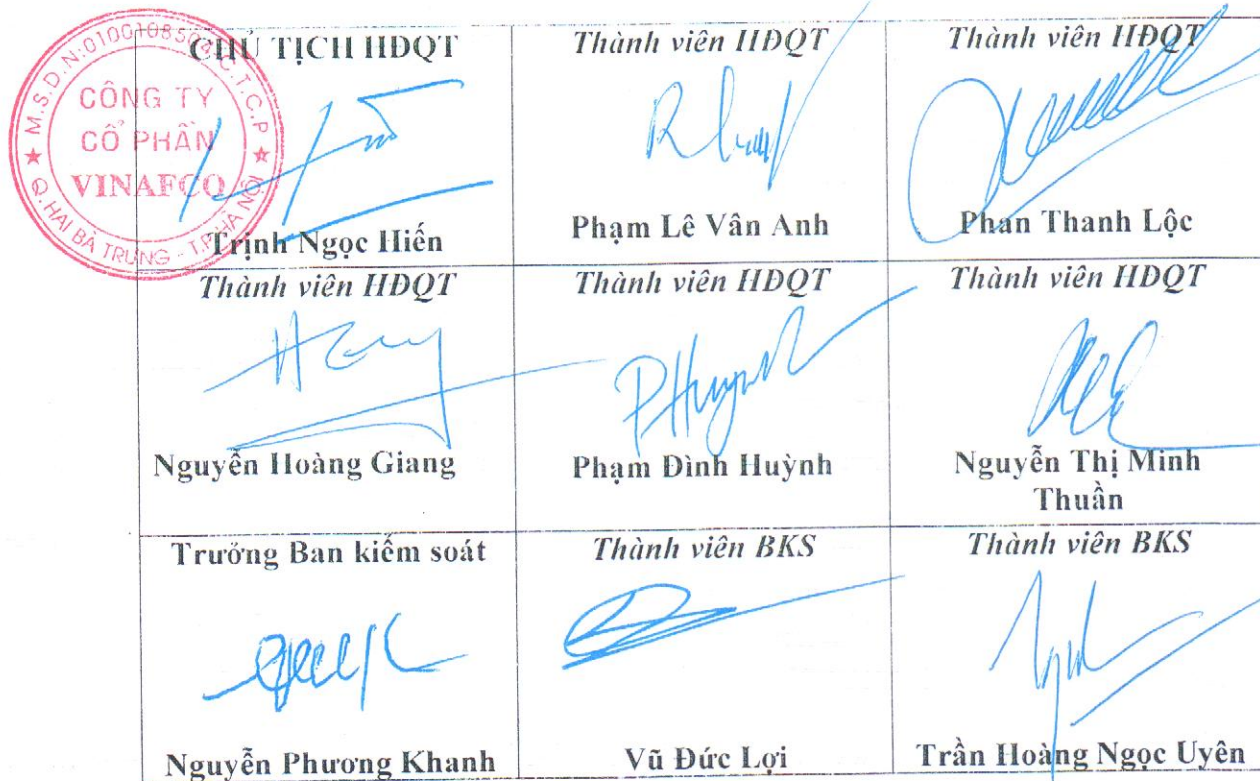 M.S.D.N:0100108504-C.T.C.P
CÔNG TY
CỔ PHẦN
VINAFCO
Q. HAI BÀ TRƯNG - T.P HÀ NỘI
CHỦ TỊCH HĐQT
Trịnh Ngọc Hiến
Thành viên HĐQT
Phạm Lê Vân Anh
Thành viên HĐQT
Phan Thanh Lộc
Thành viên HĐQT
Nguyễn Hoàng Giang
Thành viên HĐQT
PHuynh
Phạm Đình Huỳnh
Thành viên HĐQT
Nguyễn Thị Minh
Thuần
Trưởng Ban kiểm soát
Nguyễn Phương Khanh
Thành viên BKS
Vũ Đức Lợi
Thành viên BKS
Trần Hoàng Ngọc Uyên